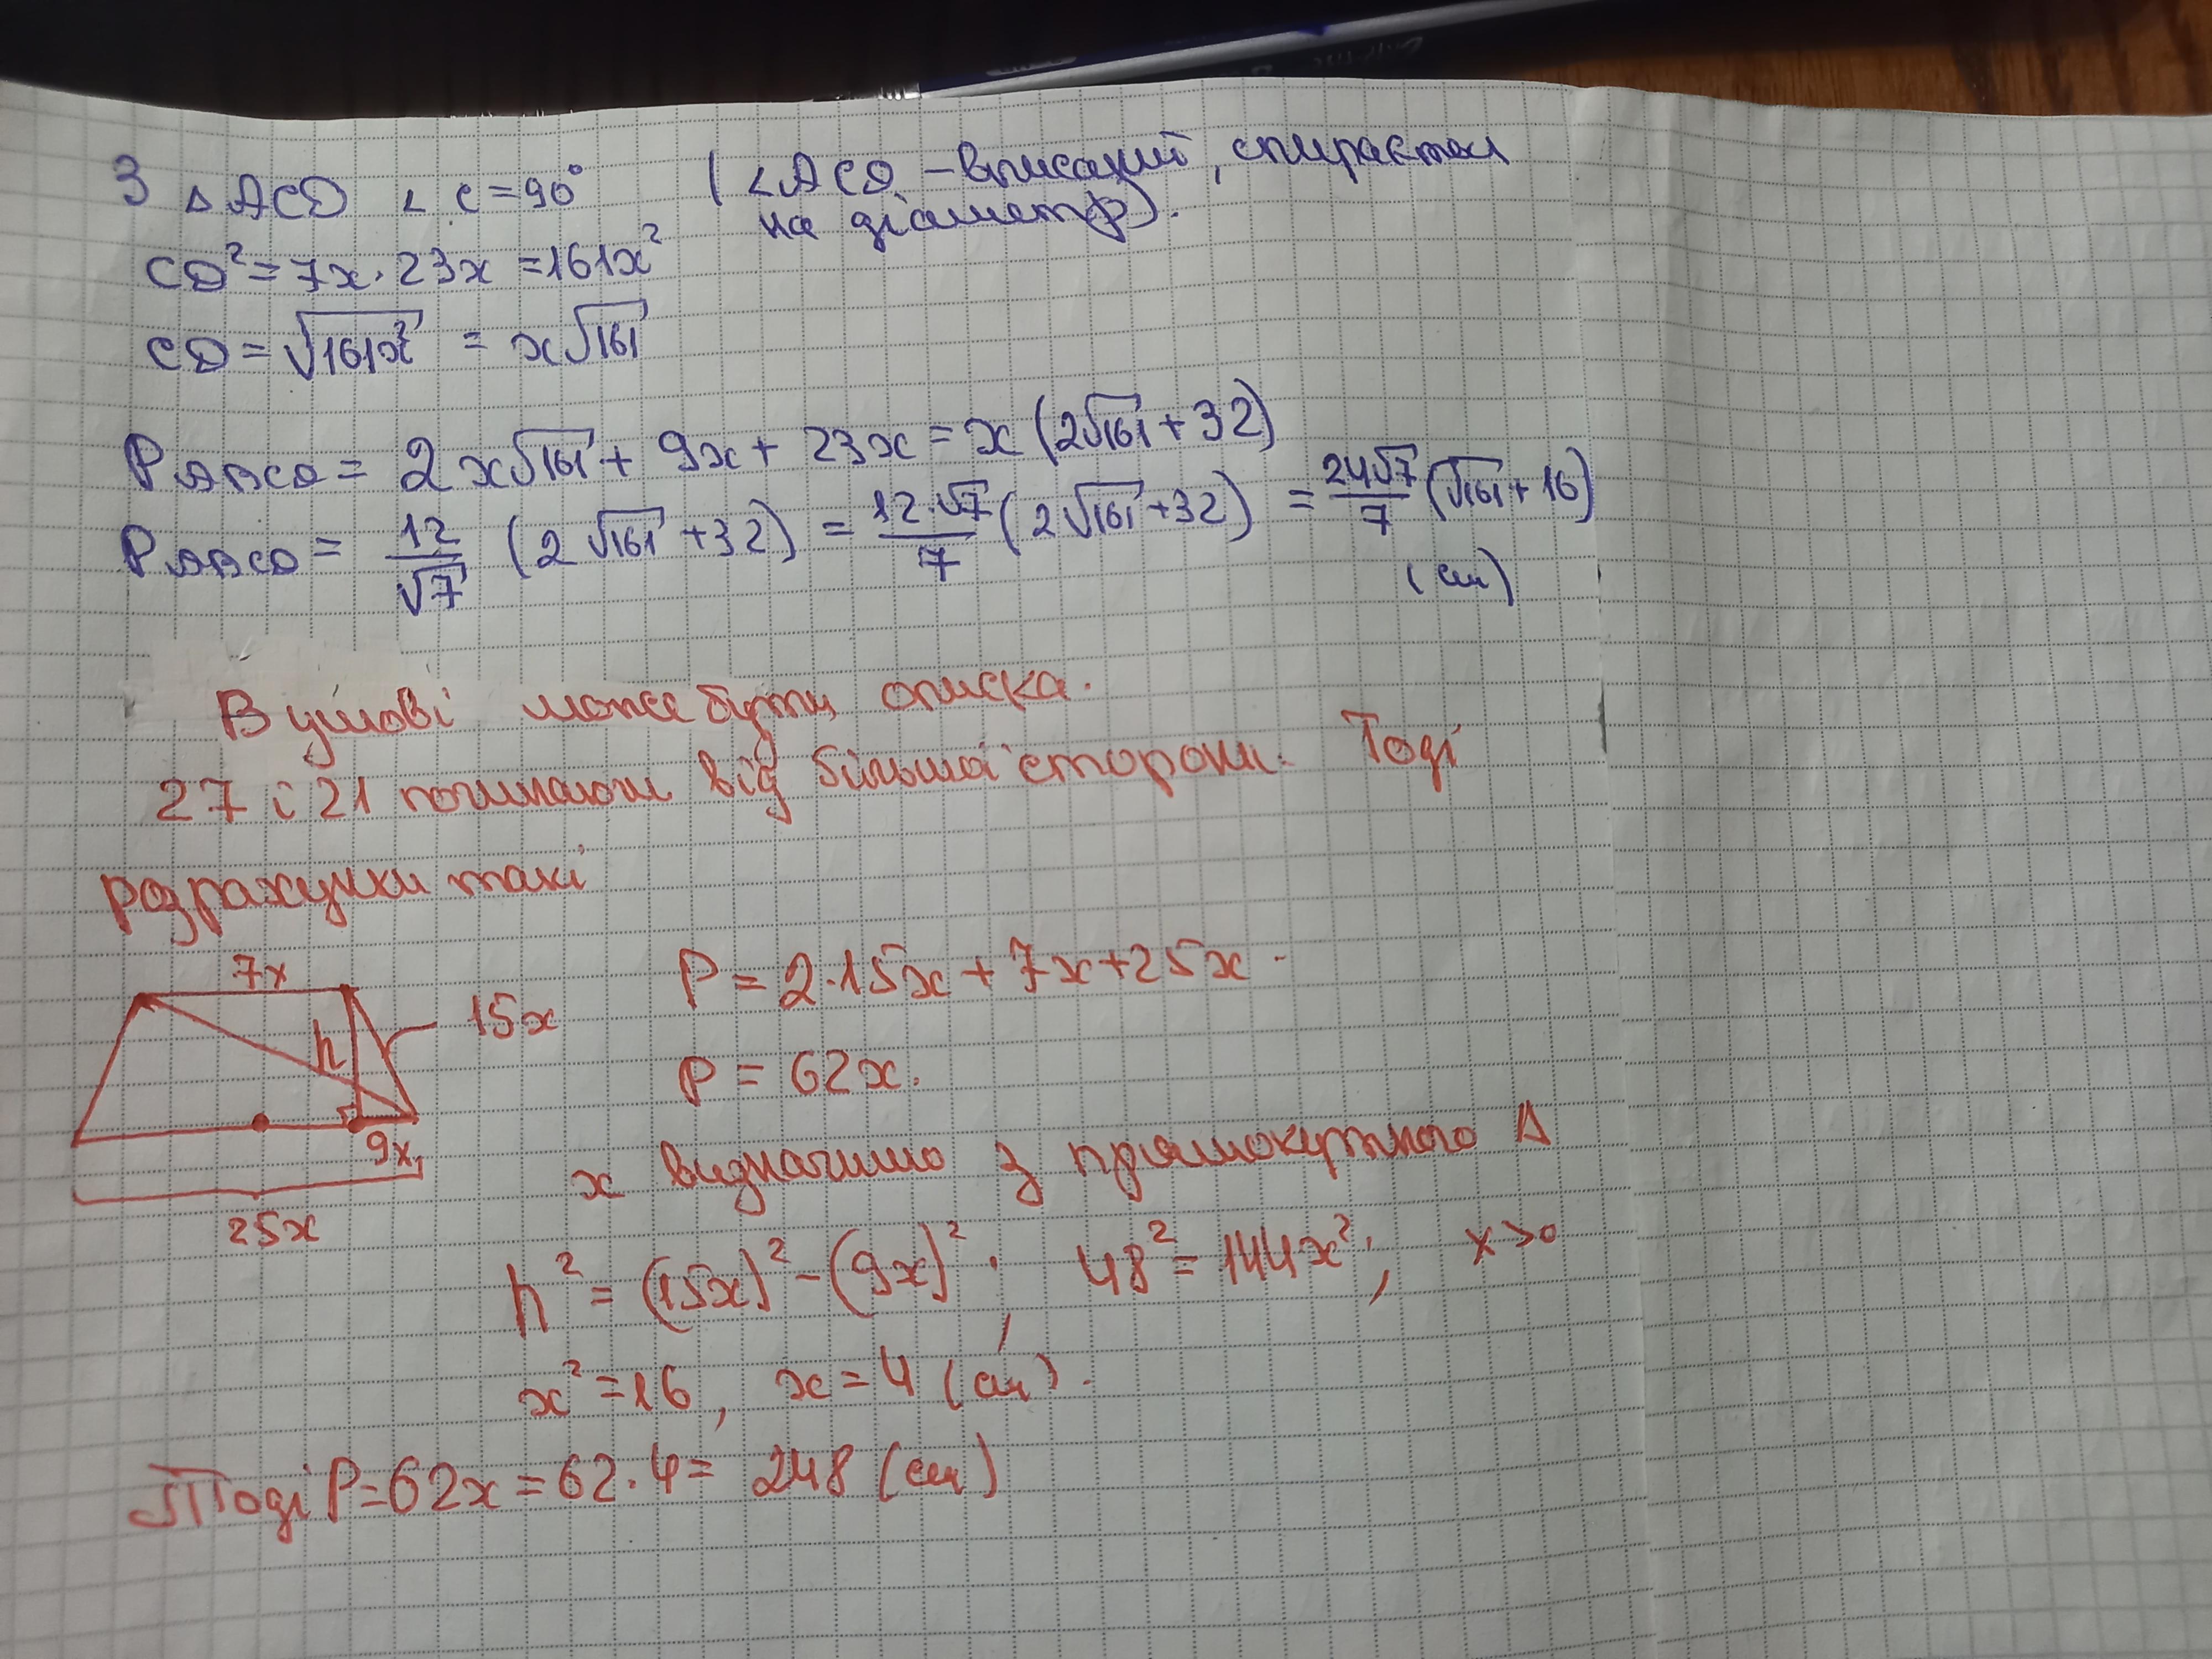 З △ACD ∠C=90° (∠ACD – вписаний, спирається
на діаметр).
CD²=7x·23x=161x²
CD=√161x² = x√161
P ABCD = 2x√161 + 9x + 23x = x(2√161 + 32)
P ABCD = 12/√7 (2√161 + 32) = 12·√7/7 (2√161 + 32) = 24√7/7 (√161 + 16)
(см)
В умові може бути описка.
27 і 21 починаючи від більшої сторони. Тоді
розрахунки такі
7x
h
15x
9x
25x
P = 2·15x + 7x + 25x.
P = 62x.
x визначимо з прямокутного △
h² = (15x)² – (9x)²; 48² = 144x²; x>0
x²=16, x=4 (см).
Тоді P=62x=62·4= 248 (см)